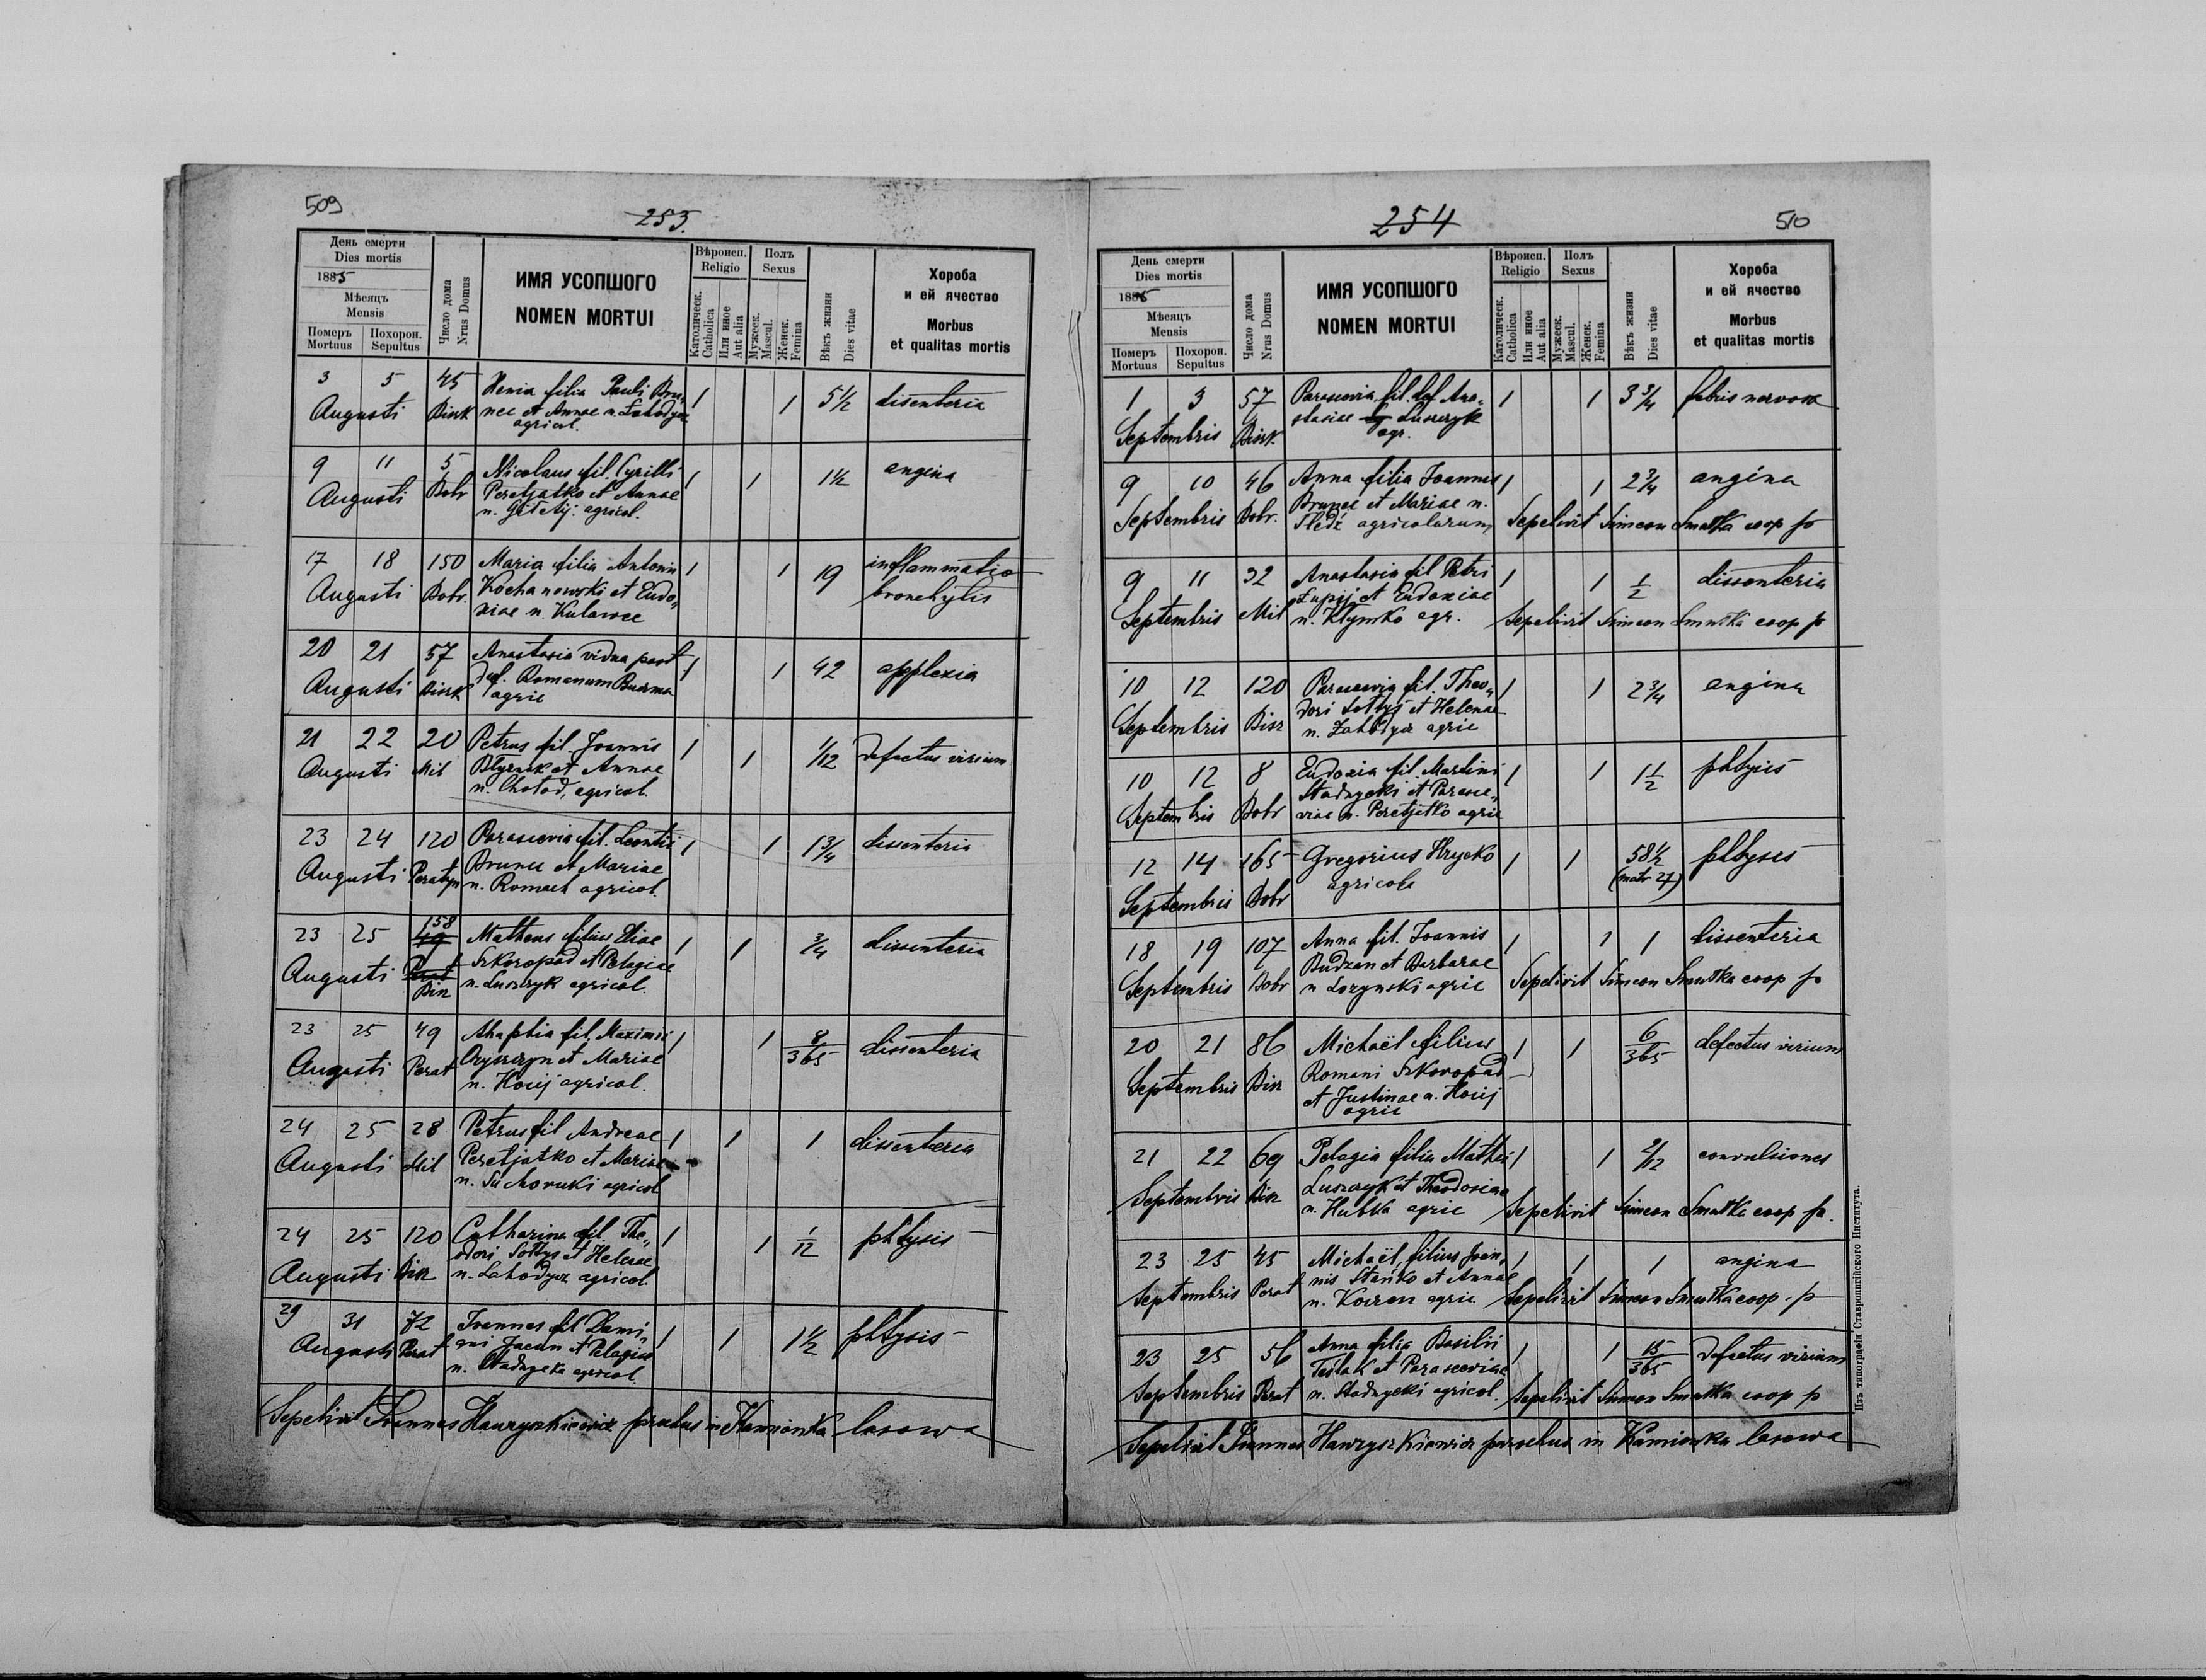 509
253.
День смерти
Dies mortis
1885
Мѣсяцъ
Mensis
Померъ
Mortuus
Похорон.
Sepultus
Число дома
Nrus Domus
ИМЯ УСОПШОГО
NOMEN MORTUI
Вѣроисп.
Religio
Католическ.
Catholica
Или иное
Aut alia
Полъ
Sexus
Мужеск.
Mascul.
Женск.
Femina
Вѣкъ жизни
Dies vitae
Хороба
и ей ячество
Morbus
et qualitas mortis
3 5 45 Xenia filia Pauli Bru„ 1 1 5½ disenteria
Augusti Bisk nec et Annae n. Łahodycz
agricol.
9 11 5 Nicolaus fil. Cyrilli 1 1 1½ angina
Augusti Bobr Peretjatko et Annae
n. agricol.
17 18 150 Maria filia Antonii 1 1 19 inflammatio
Augusti Bobr. Kochanowski et Eudo„ bronchytis
xiae n. Kulawec
20 21 57 Anastasia vidua post 1 1 42 applexia
Augusti Bisk def. Romanum
agric
21 22 20 Petrus fil. Joannis 1 1 1/12 defectus virium
Augusti Mil et Annae
n. agricol.
23 24 120 Parascevia fil. Leontii 1 1 1¾ dissenteria
Augusti Peratyn Brunec et Mariae
n. agricol.
23 25 158 Matheus filius Eliae 1 1 ¾ dissenteria
49
Augusti Perat Szkoropad et Pelagiae
Bisk n. Luszczyk agricol.
23 25 49 Ahaphia fil. Maximi 1 1 8/365 dissenteria
Augusti Perat et Mariae
n. Kocij agricol.
24 25 28 Petrus fil Andreae 1 1 1 dissenteria
Augusti Mil Peretjatko et Mariae
n. Suchoruki agricol
24 25 120 Catharina fil. The„ 1 1 1/12 phtysis
Augusti Bisk odori Sołtys et Helenae
n. Lahodycz agricol.
29 31 72 Joannes fil Dami„ 1 1 1½ phtysis
Augusti Perat ani Jacun et Pelagiae
n. Stadnycka agricol.
Sepelivit Joannes Hawryszkiewicz parochus in Kamionka lasowa
254
510
День смерти
Dies mortis
1885
Мѣсяцъ
Mensis
Померъ
Mortuus
Похорон.
Sepultus
Число дома
Nrus Domus
ИМЯ УСОПШОГО
NOMEN MORTUI
Вѣроисп.
Religio
Католическ.
Catholica
Или иное
Aut alia
Полъ
Sexus
Мужеск.
Mascul.
Женск.
Femina
Вѣкъ жизни
Dies vitae
Хороба
и ей ячество
Morbus
et qualitas mortis
1 3 57 Parascevia fil. def Ana„ 1 1 3¾ febris nervosa
Septembris Bisk stasiae Luszczyk
agr.
9 10 46 Anna filia Joannis 1 1 2¾ angina
Septembris Bobr. Brunec et Mariae n.
Śledź agricolarum Sepelivit Simeon Smutka coop p
9 11 32 Anastasia fil Petri 1 1 1/2 dissenteria
Septembris Mil Łupij et Eudoxiae
n. Klymko agr. Sepelivit Simeon Smutka coop p
10 12 120 Parascevia fil. Theo„ 1 1 2¾ angina
Septembris Bisk dori Sołtys et Helenae
n. Łahodycz agric
10 12 8 Eudoxia fil. Martini 1 1 1½ phtysis
Septembris Bobr Stadnycki et Parasce„
viae n. Peretjatko agric
12 14 165 Gregorius Hrycko 1 1 58½ phtysis
Septembris Bobr agricola (matr 27)
18 19 107 Anna fil. Joannis 1 1 1 dissenteria
Septembris Bobr Budzan et Barbarae
n Lozynski agric Sepelivit Simeon Smutka coop p
20 21 86 Michaël filius 1 1 6/365 defectus virium
Septembris Bisk Romani Szkoropad
et Justinae n. Kocij
agric
21 22 69 Pelagia filia Mathei 1 1 2/12 convulsiones
Septembris Bisk Luszczyk et Theodosiae
n. Hubka agric Sepelivit Simeon Smutka coop p.
23 25 45 Michaël, filius Joan„ 1 1 1 angina
Septembris Perat nis Stańko et Annae
n. agric Sepelivit Simeon Smutka coop. p
23 25 56 Anna filia Basilii 1 1 15/365 defectus virium
Septembris Perat Teślak et Parasceviae
n. Stadnycki agricol. Sepelivit Simeon Smutka coop p
Sepelivit Joannes Hawryszkiewicz parochus in Kamionka lasowa
Изъ типографіи Ставропигійского Института.